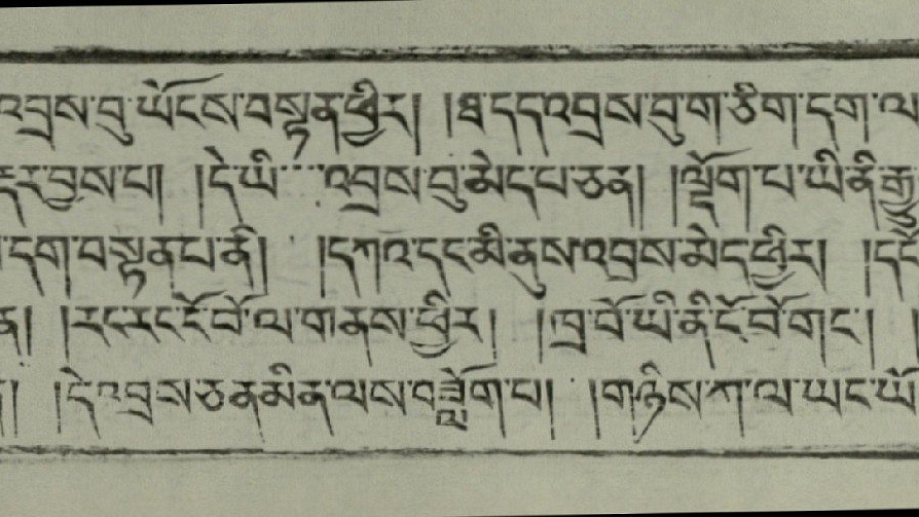 འབྲས་བུ་ཡོངས་བསྟན་ཕྱིར། །ཐ་དད་འབྲས་བུ་ག་ཅིག་དག་ལ
བྱས་པ། །དེ་ཡི་་་་འབྲས་བུ་མེད་པ་ཅན། །ལྡོག་པ་ཡི་ནི་རྒྱུ
དག་བསྟན་པ་ནི། །དཀའ་དང་མི་ནུས་འབྲས་མེད་ཕྱིར། །དངོ
ན། །རང་རང་ངོ་བོ་ལ་གནས་ཕྱིར། །ཁྲ་བོ་ཡི་ནི་ངོ་བོ་གང་། །
། །དེ་འབྲས་ཅན་མིན་ལས་བཟློག་པ། །གཉིས་ཀ་ལ་ཡང་ཡོ